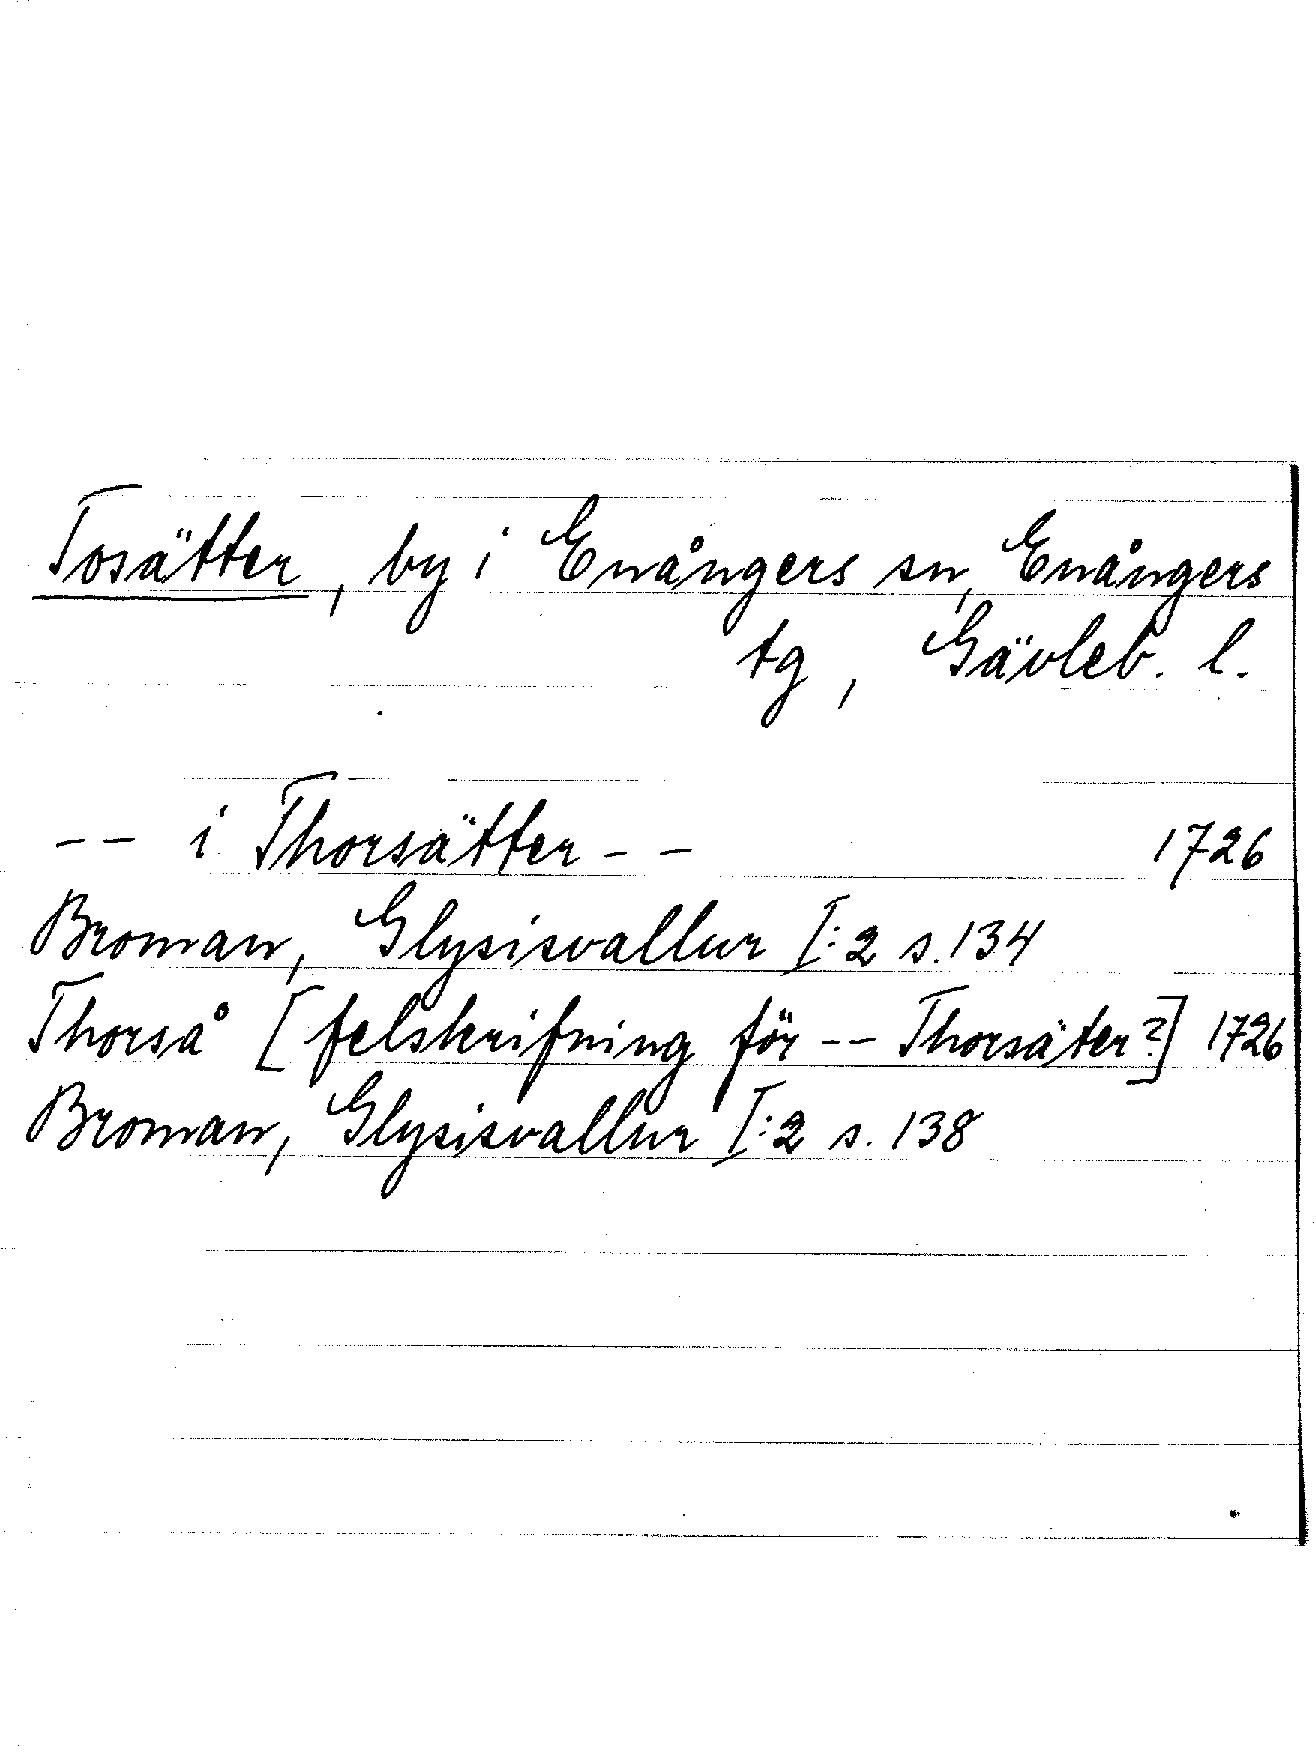 Tosätter, by i Enångers sn, Enångers
tg, Gävleb. l.
-- i Thorsätter -- 1726
Broman, Glysisvallur I:2 s. 134
Thorså [felskrifning för -- Thorsäter?] 1726
Broman, Glysisvallur I:2 s. 138